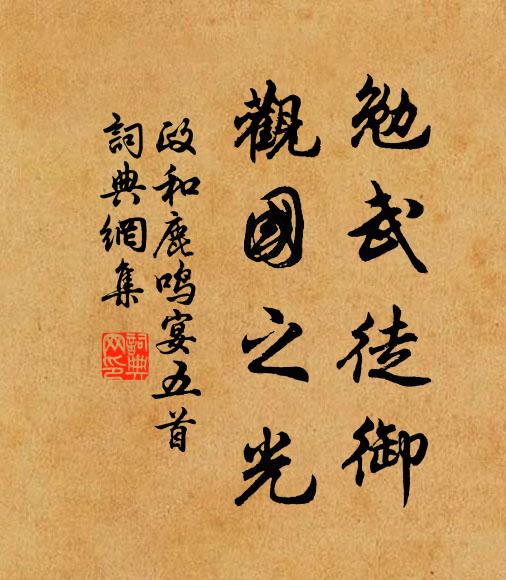 勉武徒御
觀國之光
政和鹿鸣宴五首
詞典網集
詞典
网印